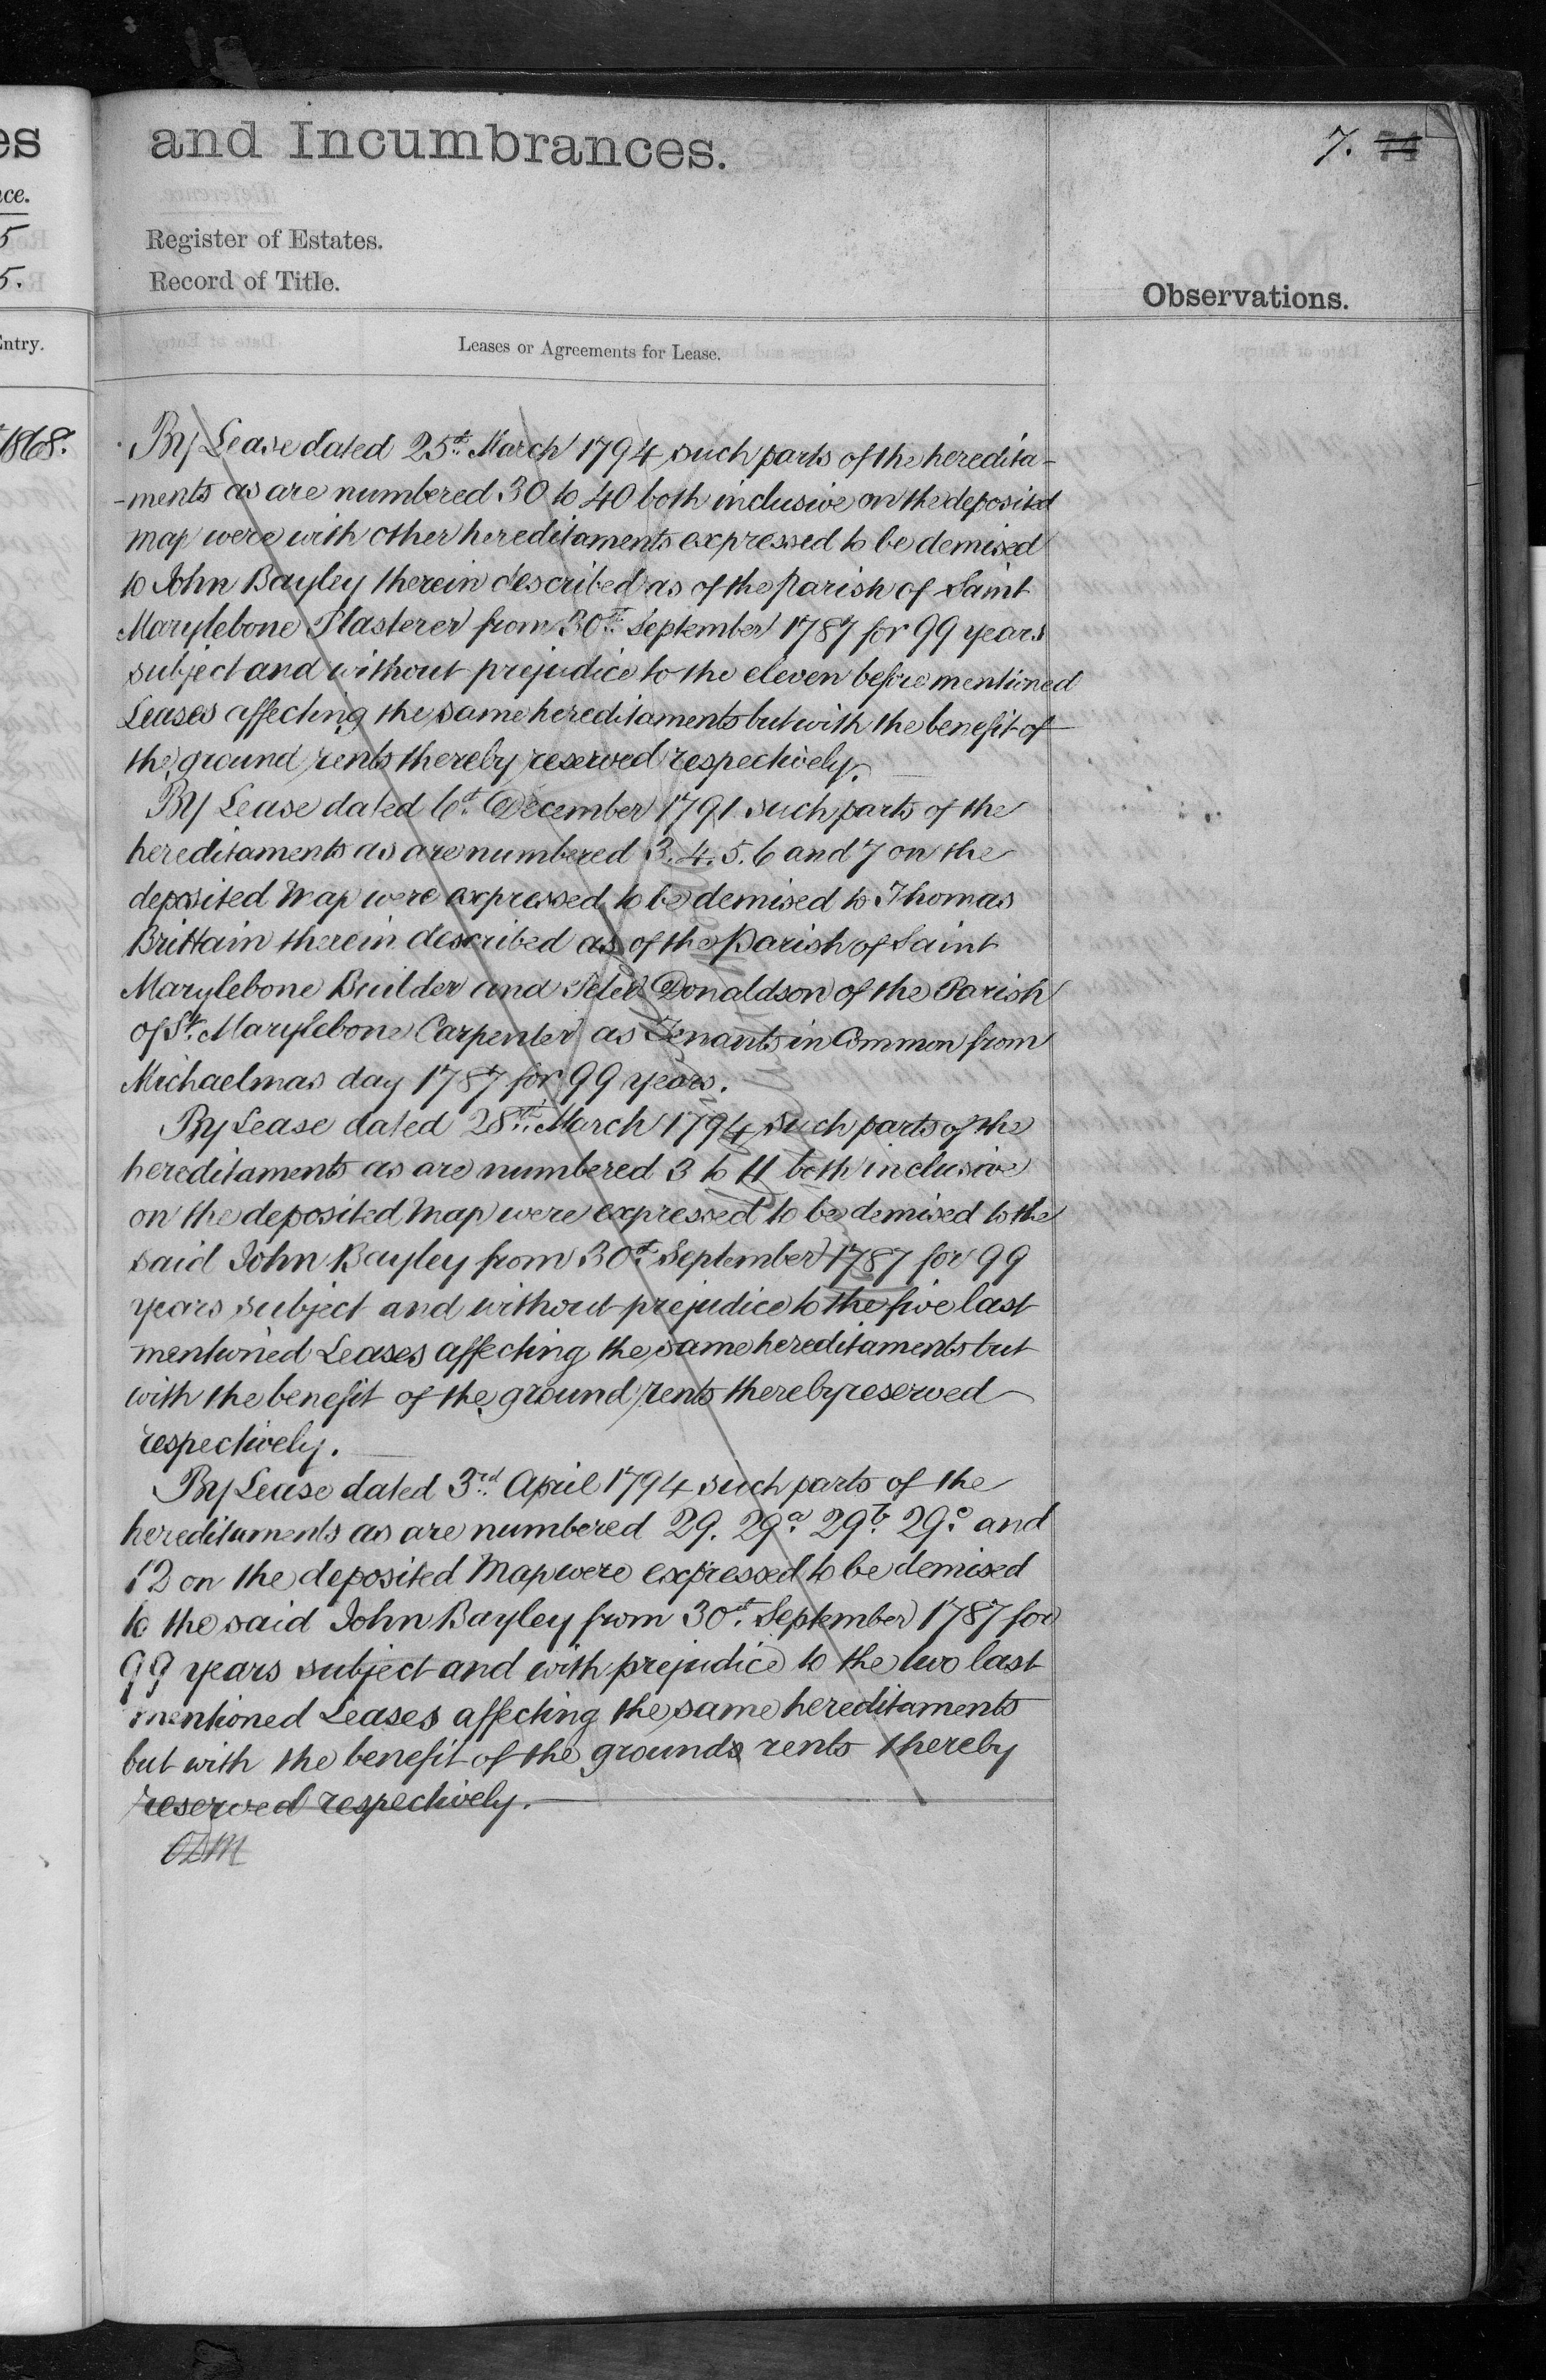 es
ce.
5
5.
Entry.
1868.
and Incumbrances.
7.
Register of Estates.
Record of Title.
Observations.
Leases or Agreements for Lease.
By Lease dated 25t. March 1794 such parts of the heredita-
-ments as are numbered 30 to 40 both inclusive on the deposited
map were with other hereditaments expressed to be demised
to John Bayley therein described as of the Parish of Saint
Marylebone Plasterer from 30th September 1787 for 99 years
subject and without prejudice to the eleven before mentioned
Leases affecting the same hereditaments but with the benefit of
the ground rents thereby reserved respectively.
By Lease dated 6t. December 1791 such parts of the
hereditaments as are numbered 3. 4. 5. 6 and 7 on the
deposited Map were expressed to be demised to Thomas
Brittain therein described as of the Parish of Saint
Marylebone Builder and Peter Donaldson of the Parish
of St. Marylebone Carpenter as Tenants in Common from
Michaelmas day 1787 for 99 years.
By Lease dated 28th. March 1794 such parts of the
hereditaments as are numbered 3 to 11 both inclusive
on the deposited Map were expressed to be demised to the
said John Bayley from 30t. September 1787 for 99
years subject and without prejudice to the five last
mentioned Leases affecting the same hereditaments but
with the benefit of the ground rents thereby reserved
respectively.
By Lease dated 3rd. April 1794 such parts of the
hereditaments as are numbered 29. 29a. 29b. 29c. and
12 on the deposited Map were expressed to be demised
to the said John Bayley from 30t. September 1787 for
99 years subject and with prejudice to the two last
mentioned Leases affecting the same hereditaments
but with the benefit of the grounds rents thereby
reserved respectively.